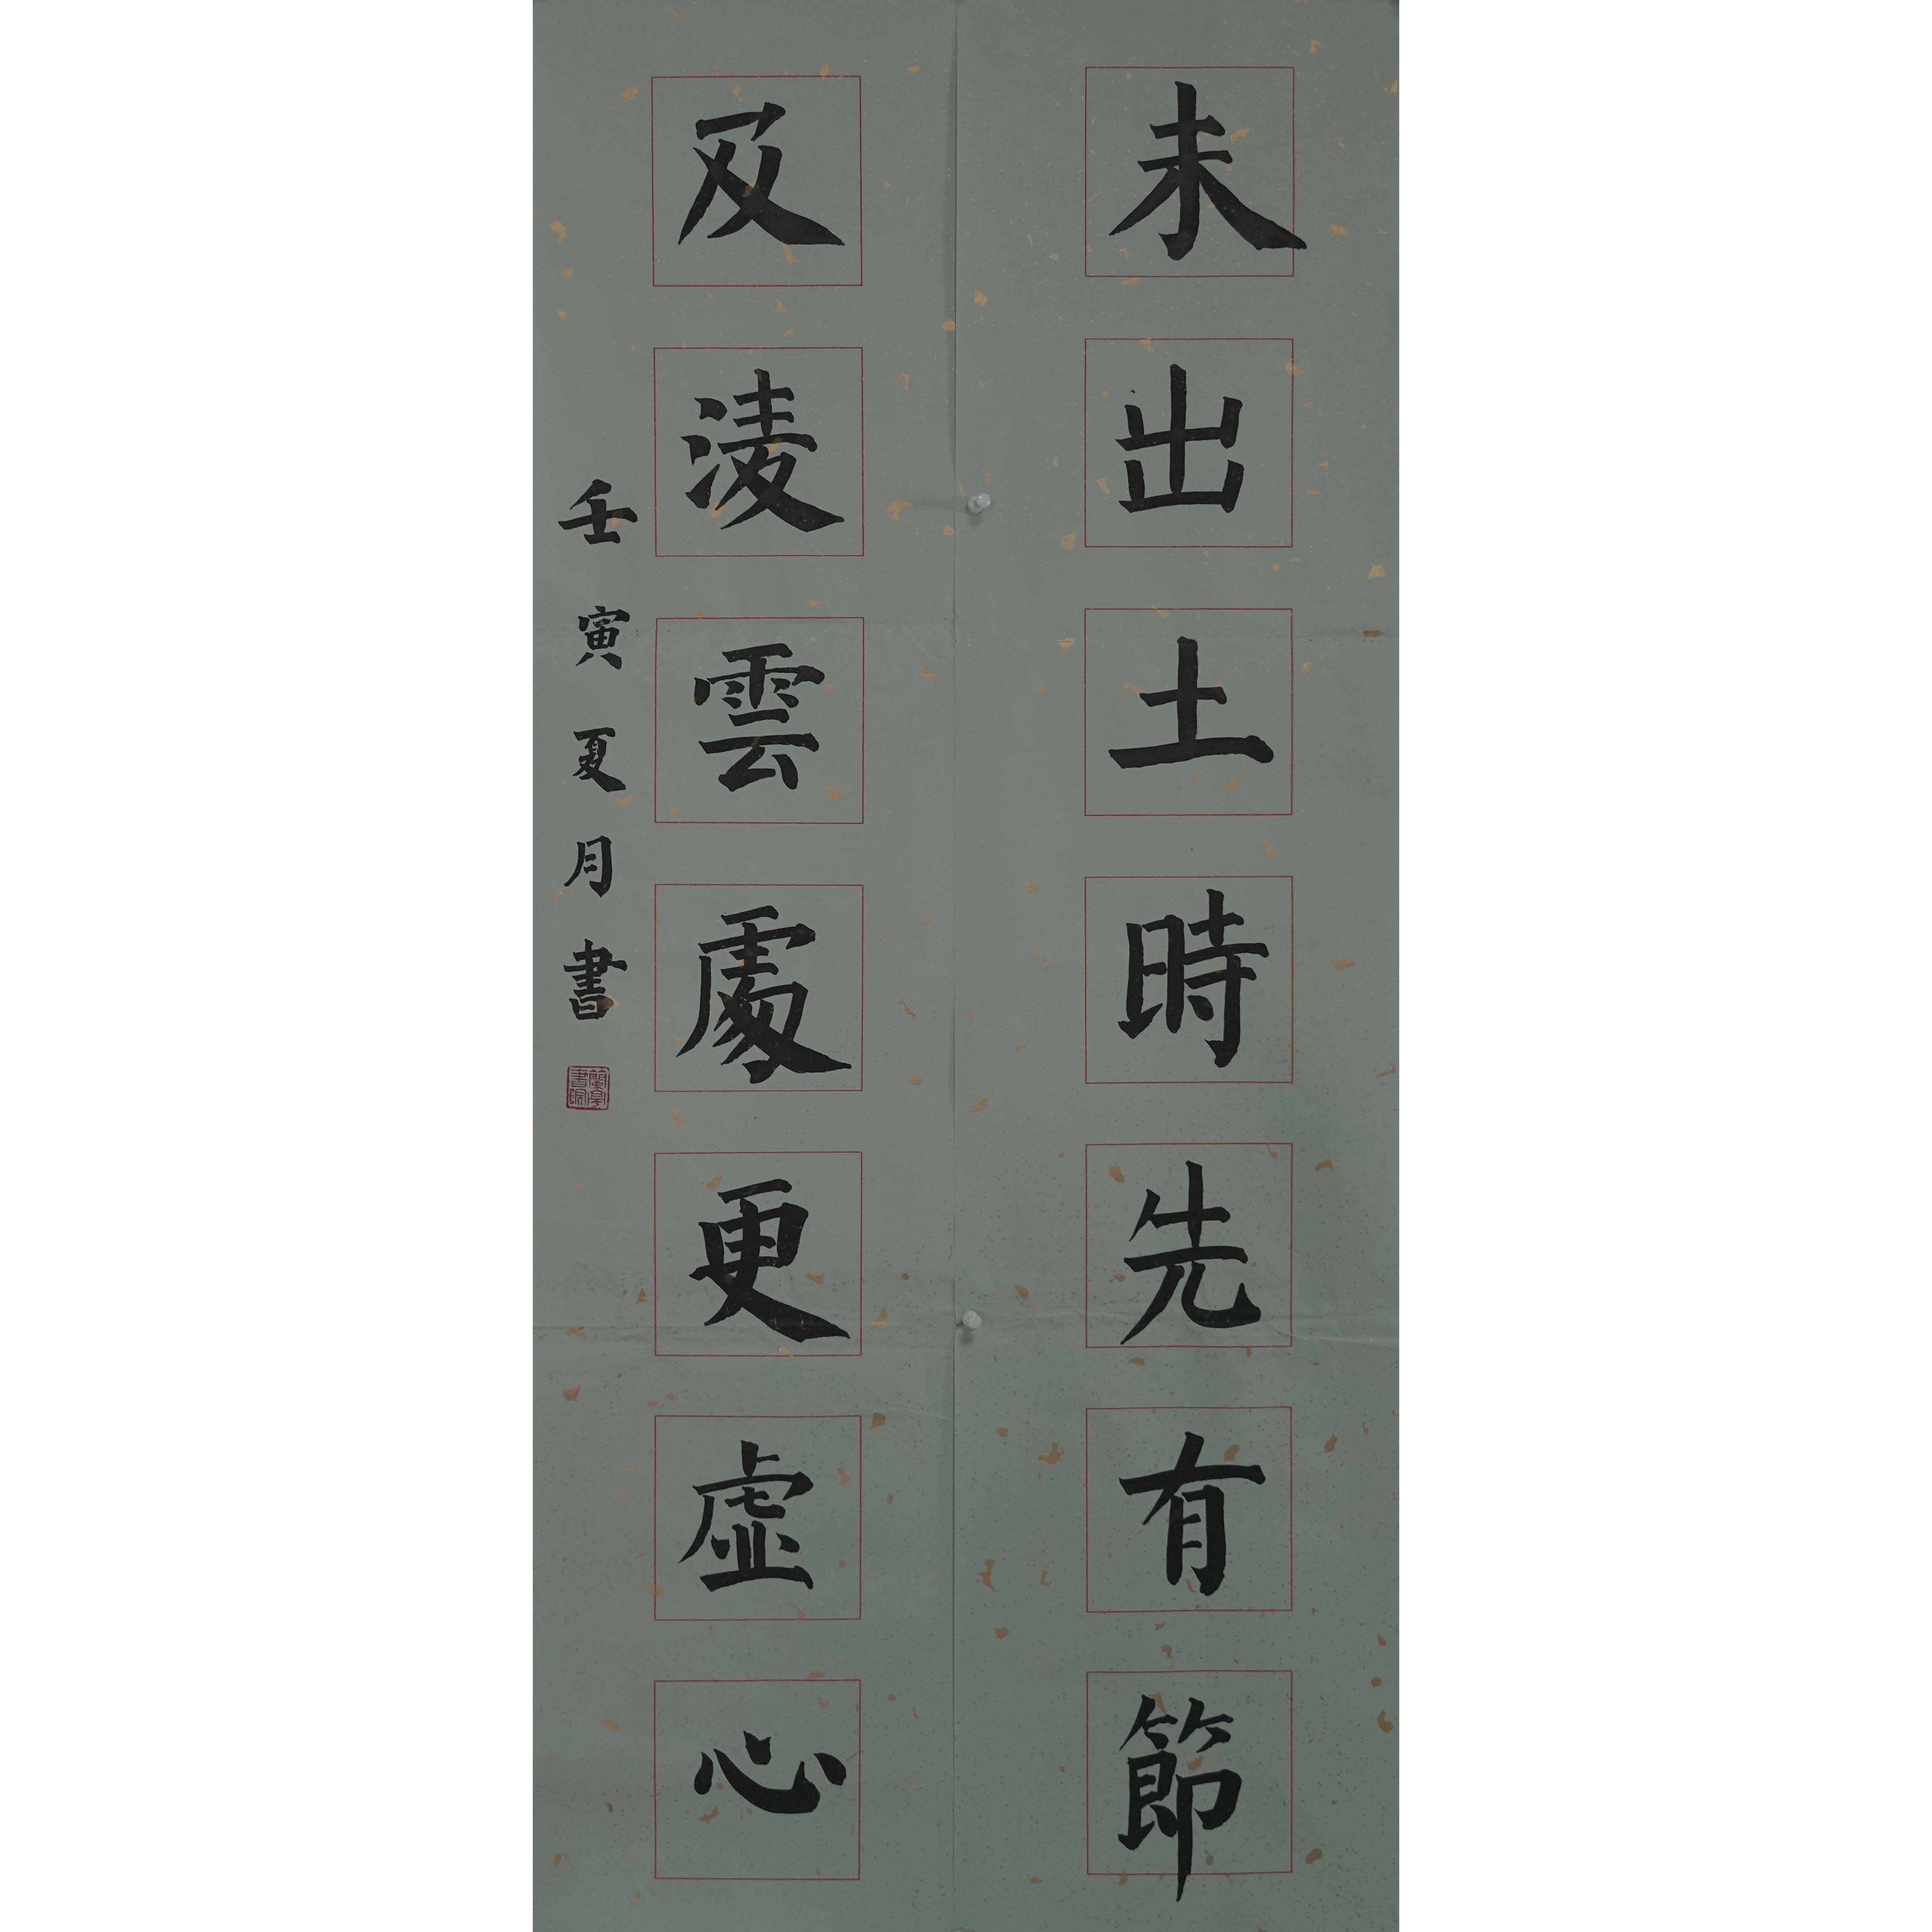 未出土時先有節
及淩雲處更虛心
壬寅夏月書
蘭亭書院